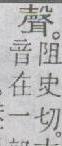 聲。
阻史切。
音在一